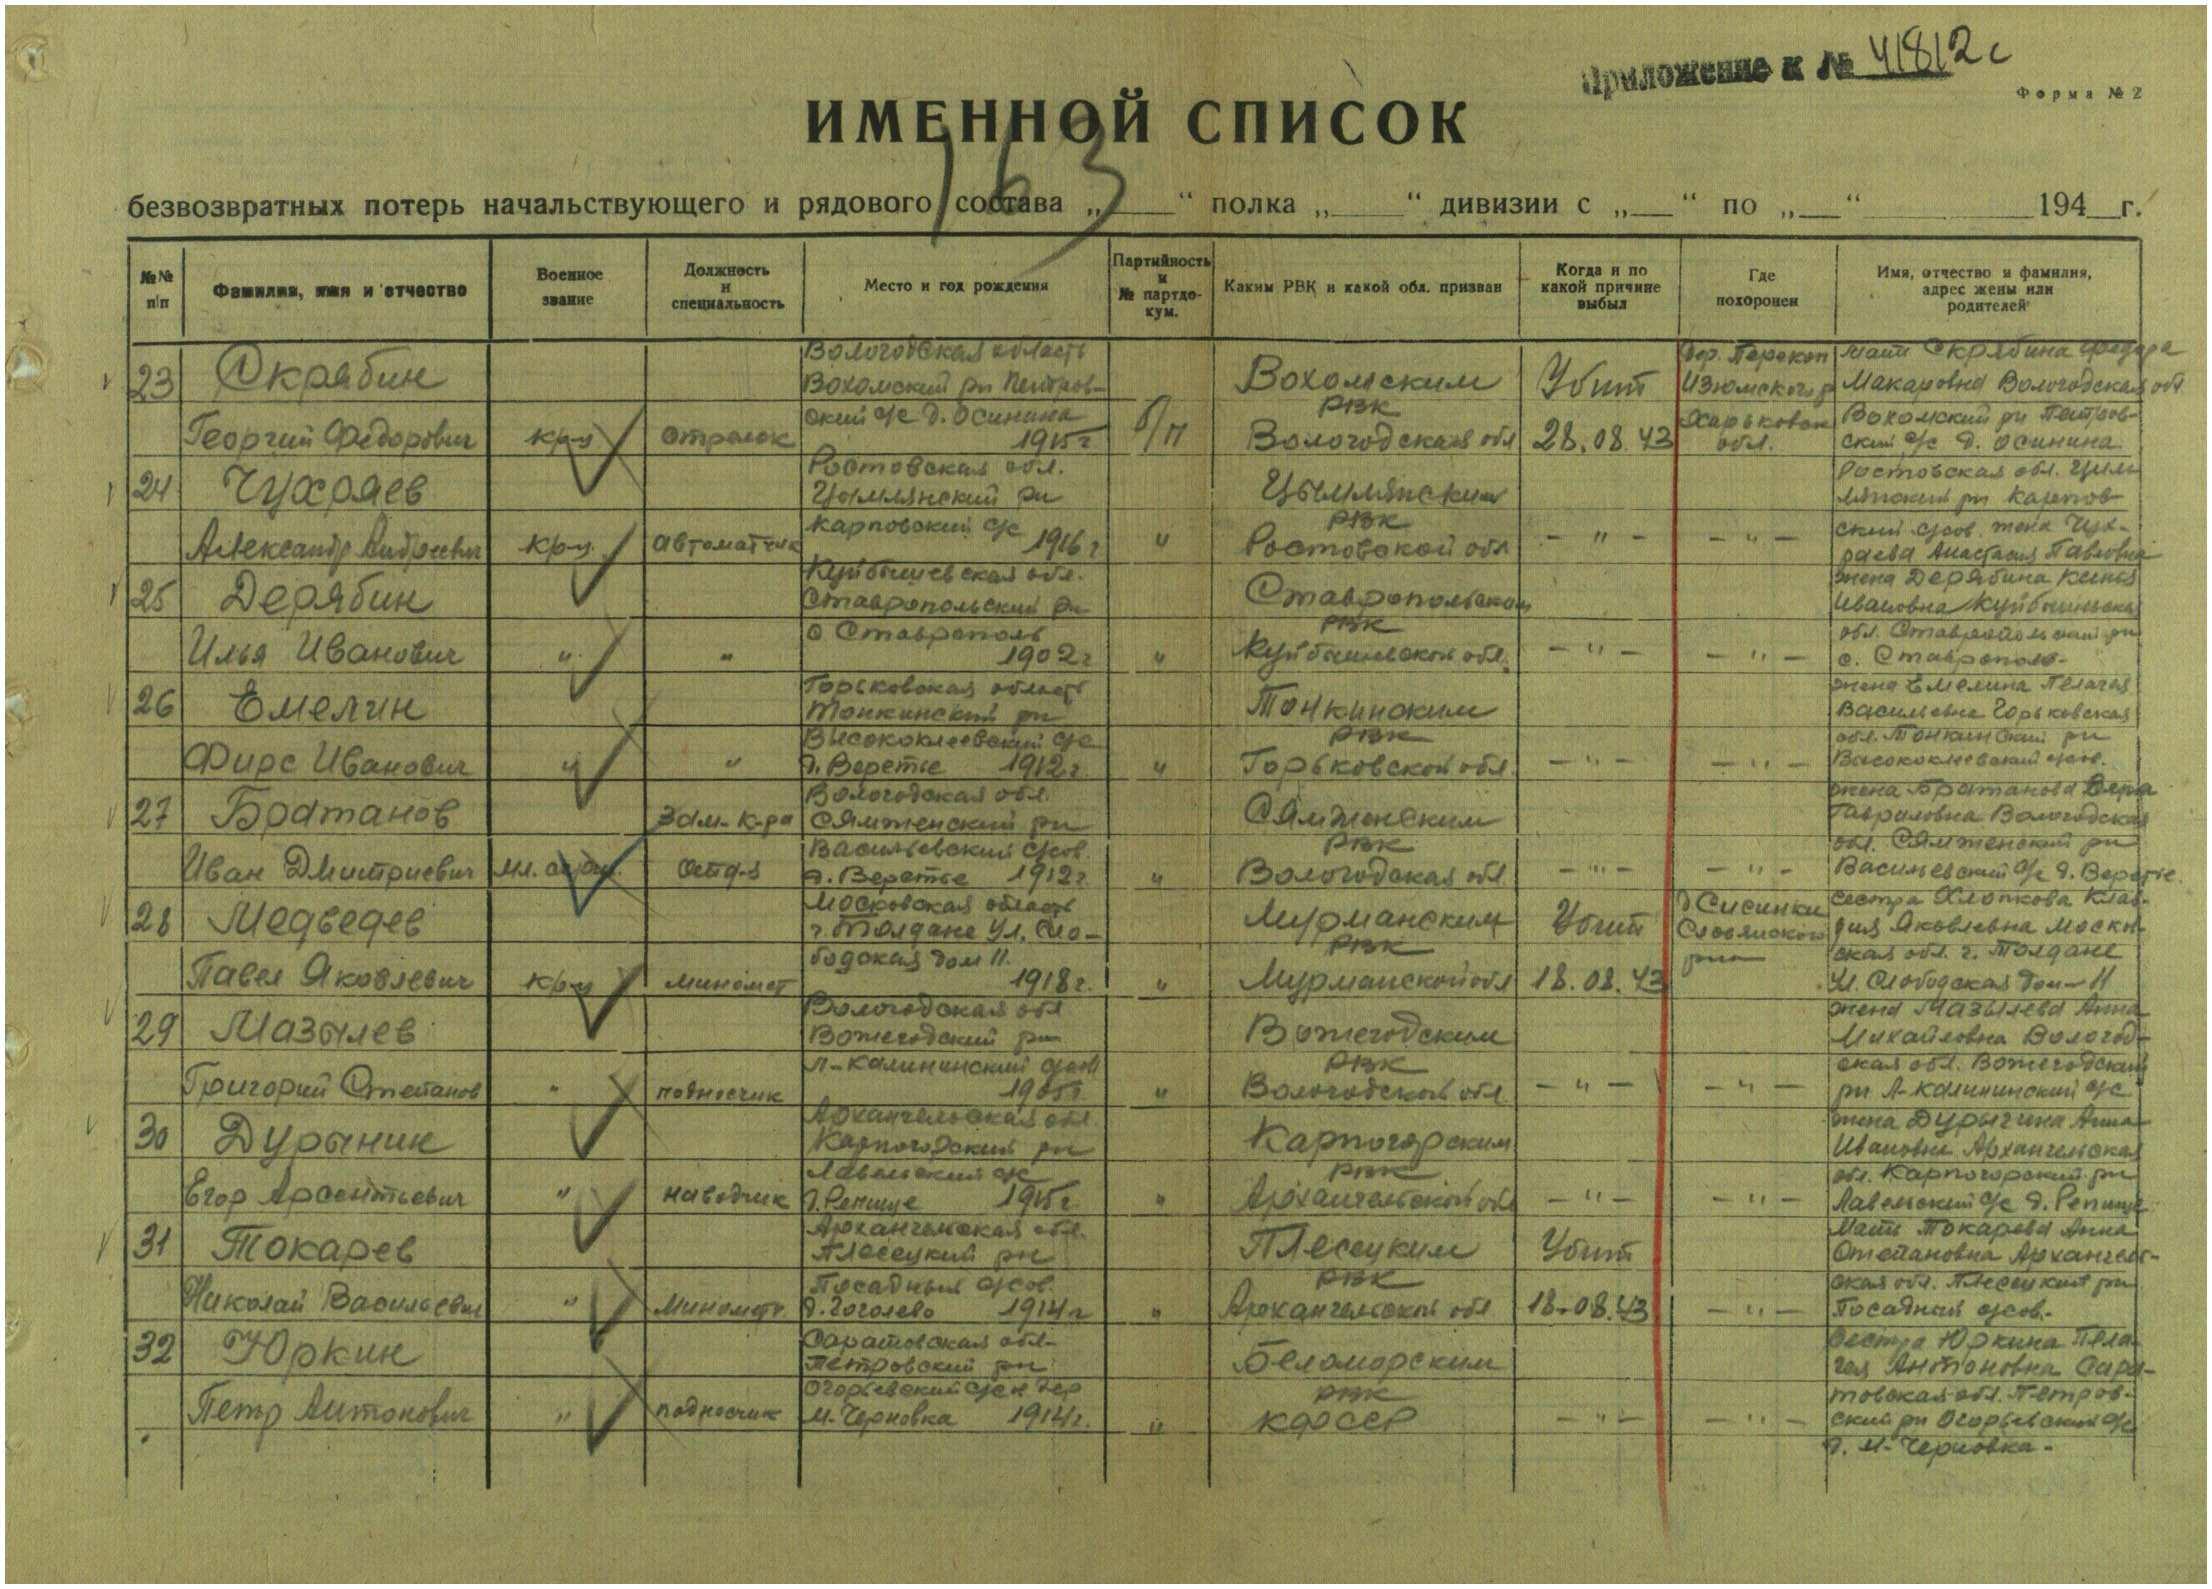 Приложение к № 41812с
Форма № 2
ИМЕННОЙ СПИСОК
163
безвозвратных потерь начальствующего и рядового состава „ “ полка „ “ дивизии с „ “ по „ “ 194 г.
№№ п/п
Фамилия, имя и отчество
Военное звание
Должность и специальность
Место и год рождения
Партийность и № партдокум.
Каким РВК и какой обл. призван
Когда и по какой причине выбыл
Где похоронен
Имя, отчество и фамилия, адрес жены или родителей
23 Скрябин
Георгий Федорович
кр-ц
стрелок
Вологодская область
Вохомский рн Петров-
ский с/с д. Осинина
1915 г
б/п
Вохомским
РВК
Вологодская обл
Убит
28.08.43
дер. Перекоп
Изюмского р
Харьковск
обл.
Мати Скрябина
Макаровна Вологодская обл
Вохомский рн Петров-
ский с/с д. Осинина
24 Чухряев
Александр Андреевич
кр-ц
автоматчик
Ростовская обл.
Цымлянский рн
Карповский с/с
1916 г
"
Цымлянским
РВК
Ростовской обл
- " -
- " -
Ростовская обл. Цым
лянский рн Карпов
ский с/сов. жена Чух-
раева Анастасия Павловна
25 Дерябин
Илья Иванович
"
"
Куйбышевская обл.
Ставропольский рн
с Ставрополь
1902 г
"
Ставропольским
РВК
Куйбышевской обл.
- " -
- " -
жена Дерябина
Ивановна
обл. Ставропольский рн
с. Ставрополь-
26 Емелин
Фирс Иванович
"
"
Горьковская область
Тонкинский рн
Высококлеевский с/с
д. Веретье 1912 г.
"
Тонкинским
РВК
Горьковской обл.
- " -
- " -
жена Емелина Пелагея
Васильевна Горьковская
обл. Тонкинский рн
27 Братанов
Иван Дмитриевич
мл. серж.
Зам. к-ра
отд-я
Вологодская обл.
Сямженский рн
Васильевский с/сов
д. Веретье 1912 г
"
Сямженским
РВК
Вологодская обл
- " -
- " -
жена Братанова Вера
Гавриловна Вологодская
обл. Сямженский рн
Васильевский с/с д. Веретье.
28 Медведев
Павел Яковлевич
кр-ц
миномет
Московская область
г. Толдане Ул. Сло-
бодская дом 11.
1918 г.
"
Мурманским
РВК
Мурманской обл
Убит
18.08.43
д Сисинки
Славянского
рна
сестра Хлопкова Клав-
дия Яковлевна Москов
ская обл. г. Толдане
Ул. Слободская дом-11
29 Мазылев
Григорий Степанов
"
подносчик
Вологодская обл
Вожегодский рн
п-Калининский с/сов
1905 г
"
Вожегодским
РВК
Вологодской обл.
- " -
- " -
жена Мазылева Анна
Михайловна Вологод-
ская обл. Вожегодский
рн п-Калининский с/с
30 Дурыник
Егор Арсентьевич
"
наводчик
Архангельская обл.
Карпогорский рн
Лавельский с/с
д. Репище 1915 г
"
Карпогорским
РВК
Архангельской обл
- " -
- " -
жена Дурыгина Анна
Ивановна Архангельская
обл. Карпогорский рн
Лавельский с/с д. Репище
31 Токарев
Николай Васильевич
"
Минометч.
Архангельская обл.
Плесецкий рн
Посадный с/сов.
д. Гоголево 1914 г
"
Плесецким
РВК
Архангельской обл
Убит
18.08.43
- " -
Мати Токарева Анна
Степановна Архангель-
ская обл. Плесецкий рн
Посадный с/сов.-
32 Юркин
Петр Антонович
"
подносчик
Саратовская обл-
Петровский рн
Огорьевский с/сн дер
М-Черновка 1914 г.
"
Беломорским
РВК
КФССР
- " -
- " -
Сестра Юркина Пела-
гея Антоновна Сара-
товская обл. Петров-
ский рн Огорьевский с/с
д. М-Черновка-